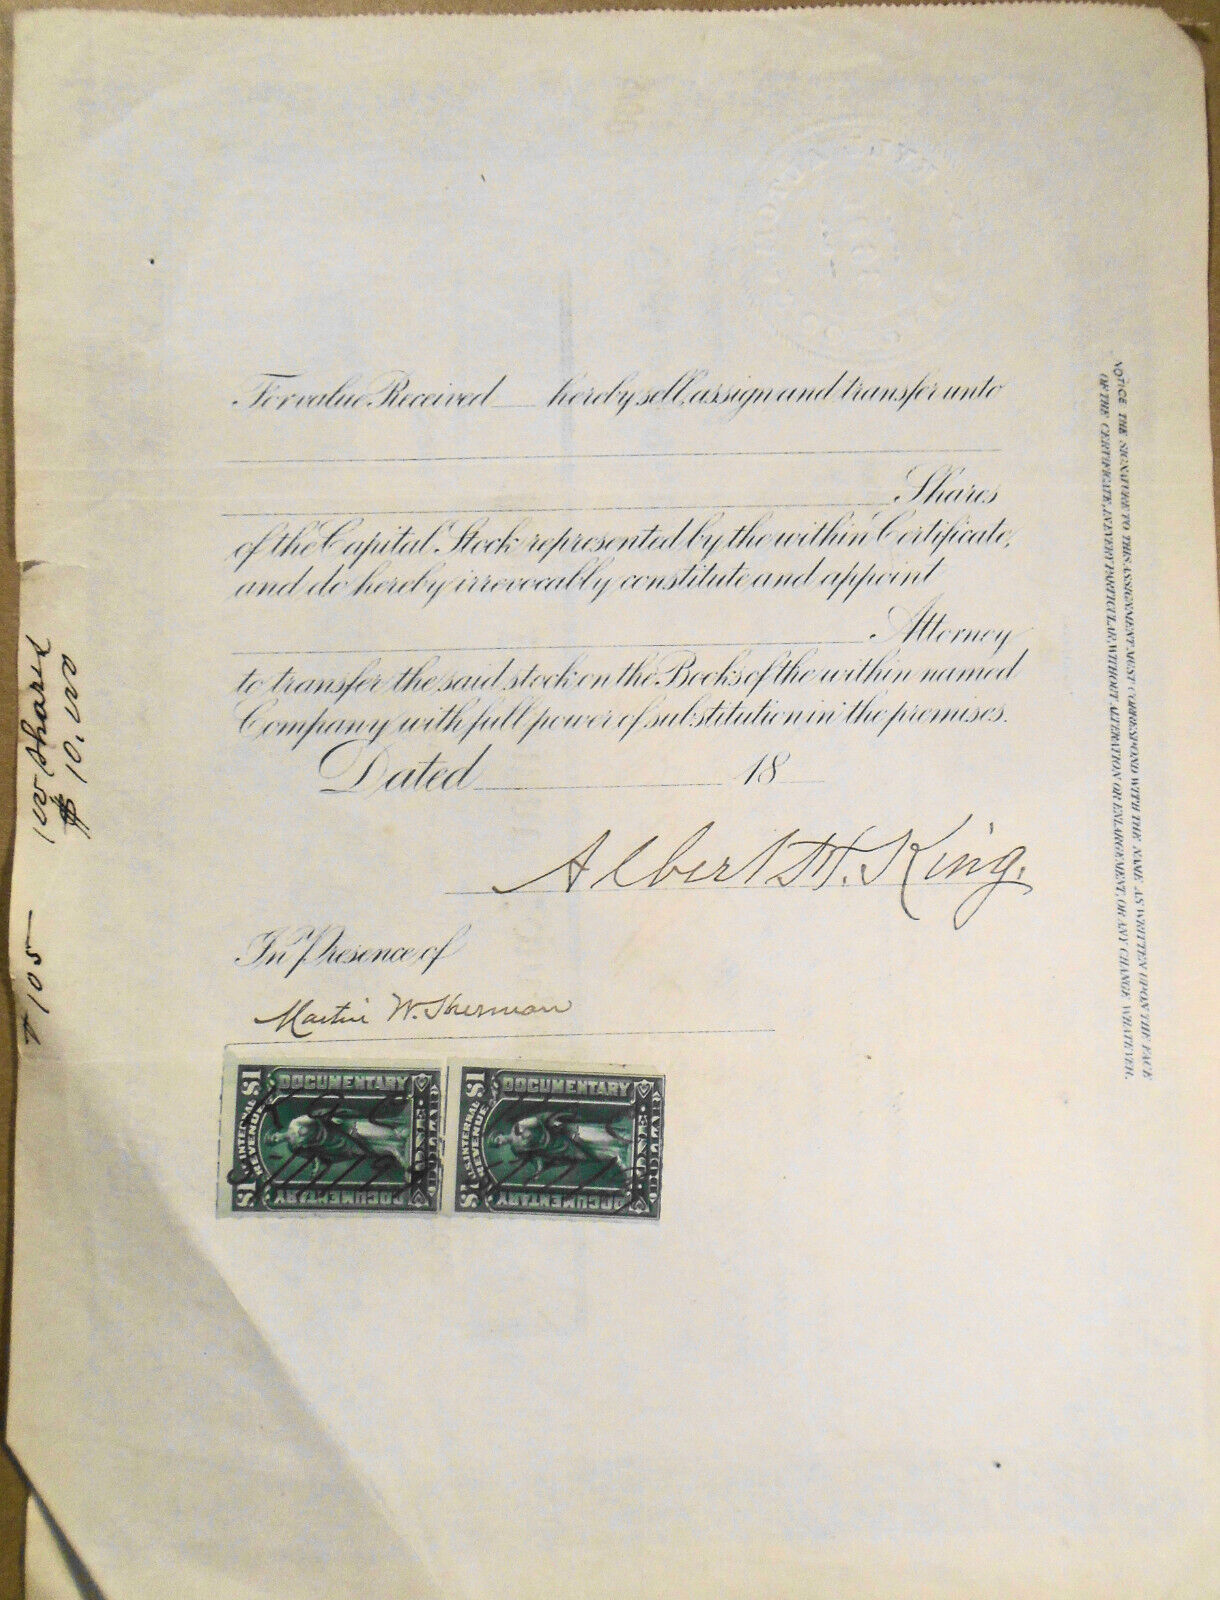 For value Received ___ hereby sell, assign and transfer unto
Shares
of the Capital Stock represented by the within Certificate,
and do hereby irrevocably constitute and appoint
Attorney
to transfer the said stock on the Books of the within named
Company with full power of substitution in the premises.
Dated 18
Albert H. King.
In Presence of
Martin W. Sherman
$1 U.S. INTERNAL REVENUE $1
DOCUMENTARY
DOCUMENTARY
ONE DOLLAR
$1 U.S. INTERNAL REVENUE $1
DOCUMENTARY
DOCUMENTARY
ONE DOLLAR
NOTICE. THE SIGNATURE TO THIS ASSIGNMENT MUST CORRESPOND WITH THE NAME AS WRITTEN UPON THE FACE
OF THE CERTIFICATE, IN EVERY PARTICULAR, WITHOUT ALTERATION OR ENLARGEMENT, OR ANY CHANGE WHATEVER.
105 100 shares
$10,000